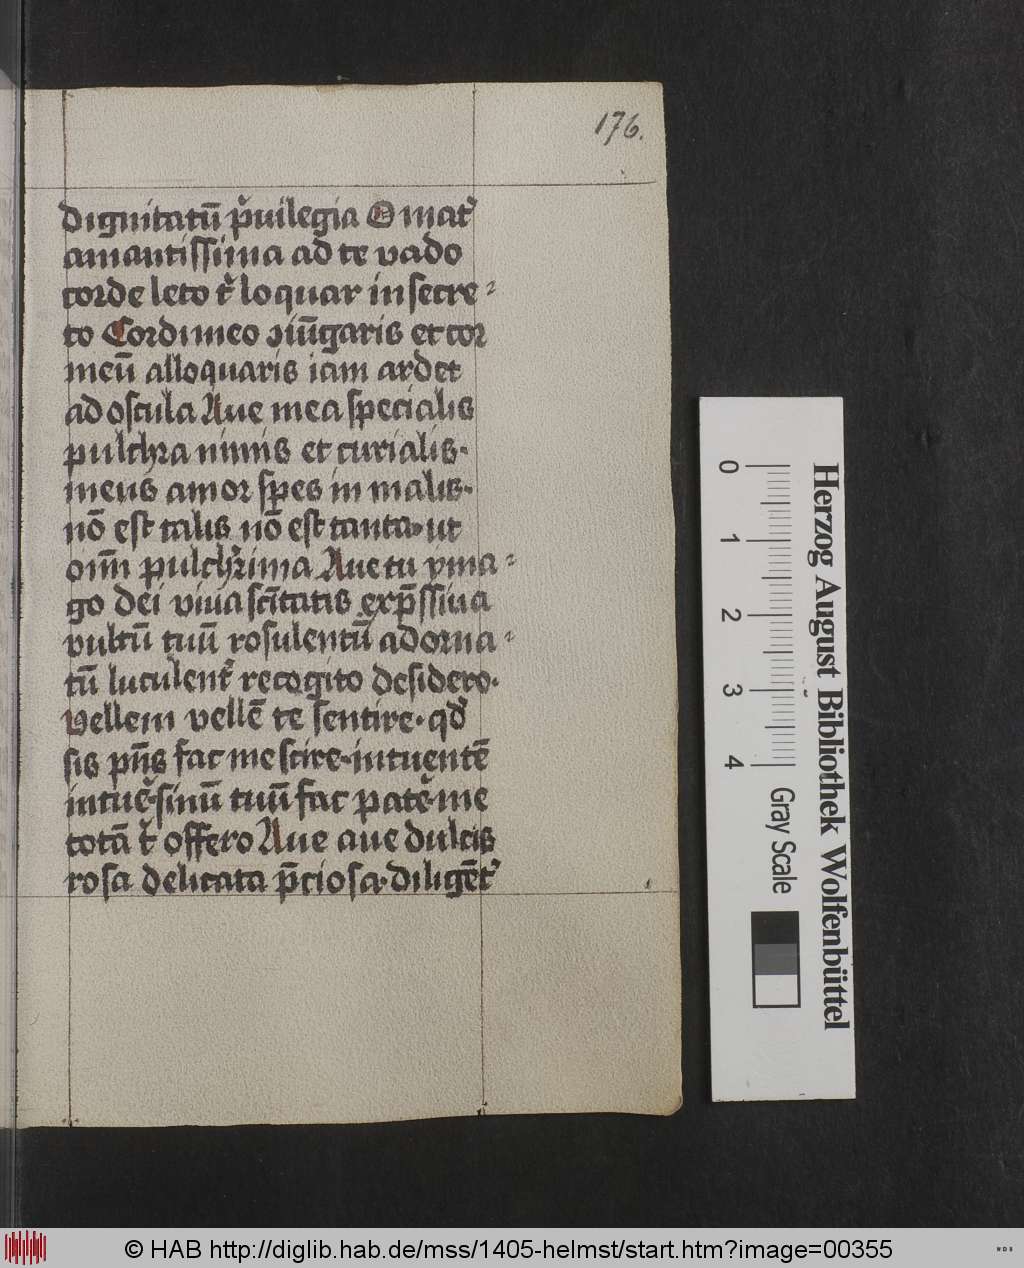 176.
dignitatū p̓uilegia O mat᷑
amantissima ad te vado
corde leto t᷑ loquar in secre⸗
to Cordi meo ꝯiūgaris et cor
meū alloquaris iam ardet
ad oscula Aue mea specialis
pulchra nimis et curialis·
meus amor spes in malis·
nō est talis nō est tanta· ut
om̄ pulch᷑rima Aue tu yma⸗
go dei viua sc̄itatis exp̄ssiua
vultū tuū rosulentū adorna⸗
tū luculent᷑ recogito desidero·
Vellem vellē te sentire· qd᷑
sis pn̄s fac me scire· intuentē
intue᷑· sinū tuū fac pate᷑· me
totā t᷑ offero Aue aue dulcis
rosa delicata p̄ciosa· diligēt᷑
0 1 2 3 4
Gray Scale
Herzog August Bibliothek Wolfenbüttel
© HAB http://diglib.hab.de/mss/1405-helmst/start.htm?image=00355